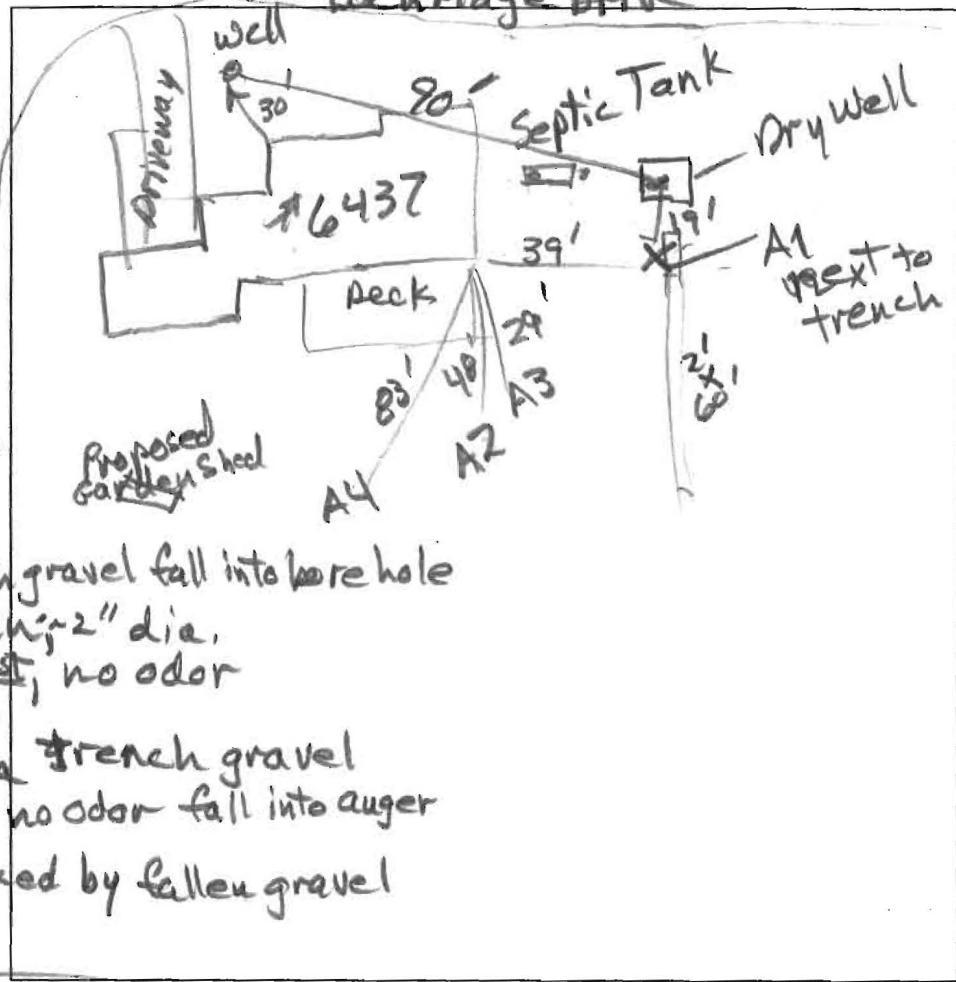 Well
Driveway
30'
90'
Septic Tank
Dry Well
#6437
39'
19'
A1
next to
trench
Deck
29'
83'
48'
A3
A2
A4
2'
x
60'
Proposed
Garden Shed
gravel fall into bore hole
~2" dia.
no odor
trench gravel
no odor fall into auger
by fallen gravel